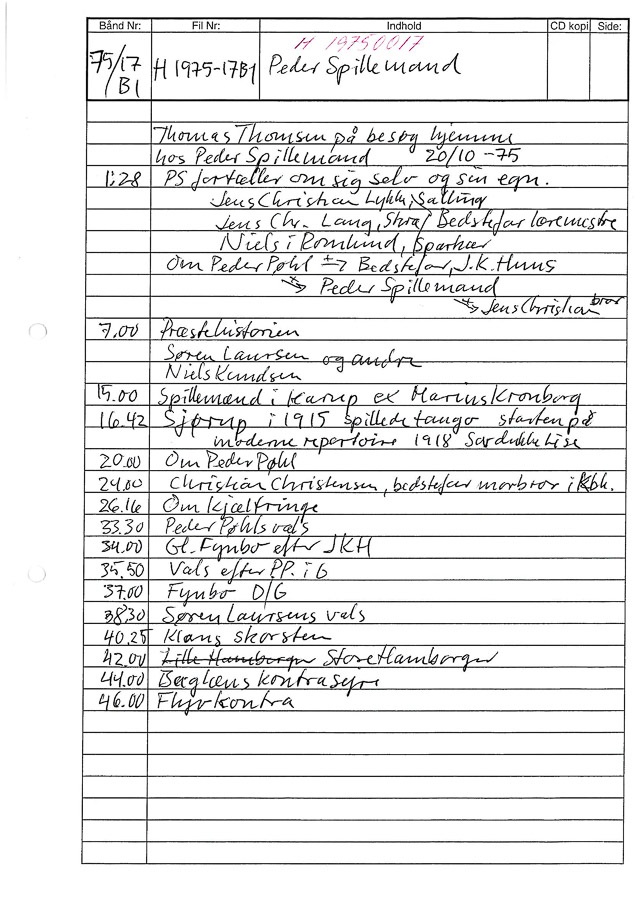 Bånd Nr: Fil Nr: Indhold CD kopi Side:
H 19750017
75/17 B1 H 1975-17B1 Peder Spillemand
Thomas Thomsen på besøg hjemme
hos Peder Spillemand 20/10 -75
1:28 PS fortæller om sig selv og sin egn.
Jens Christian Lykke, Salling
Jens Chr. Lang, Bedstefar læremestre
Niels i Romlund, Sparkær
Om Peder Pøhl → Bedstefar, J.K.
→ Peder Spillemand
→ Jens Christian bror
7.00 Præstehistorien
Søren Laursen og andre
Niels Knudsen
15.00 Spillemænd i Karup ex Marius Kronborg
16.42 Sjørup i 1915 spillede tango starten på
moderne repertoire 1918
20.00 Om Peder Pøhl
24.00 Christian Christensen, bedstefar morbror i Kbh.
26.16 Om kjæltringe
33.30 Peder Pøhls vals
34.00 Gl. Fynbo efter JKH
35.50 Vals efter P.P. i G
37.00 Fynbo D/G
38.30 Søren Laursens vals
40.25 Klaus skorsten
42.00 Lille Hamborger Store Hamborger
44.00 kontraseyre
46.00 Flyv kontra